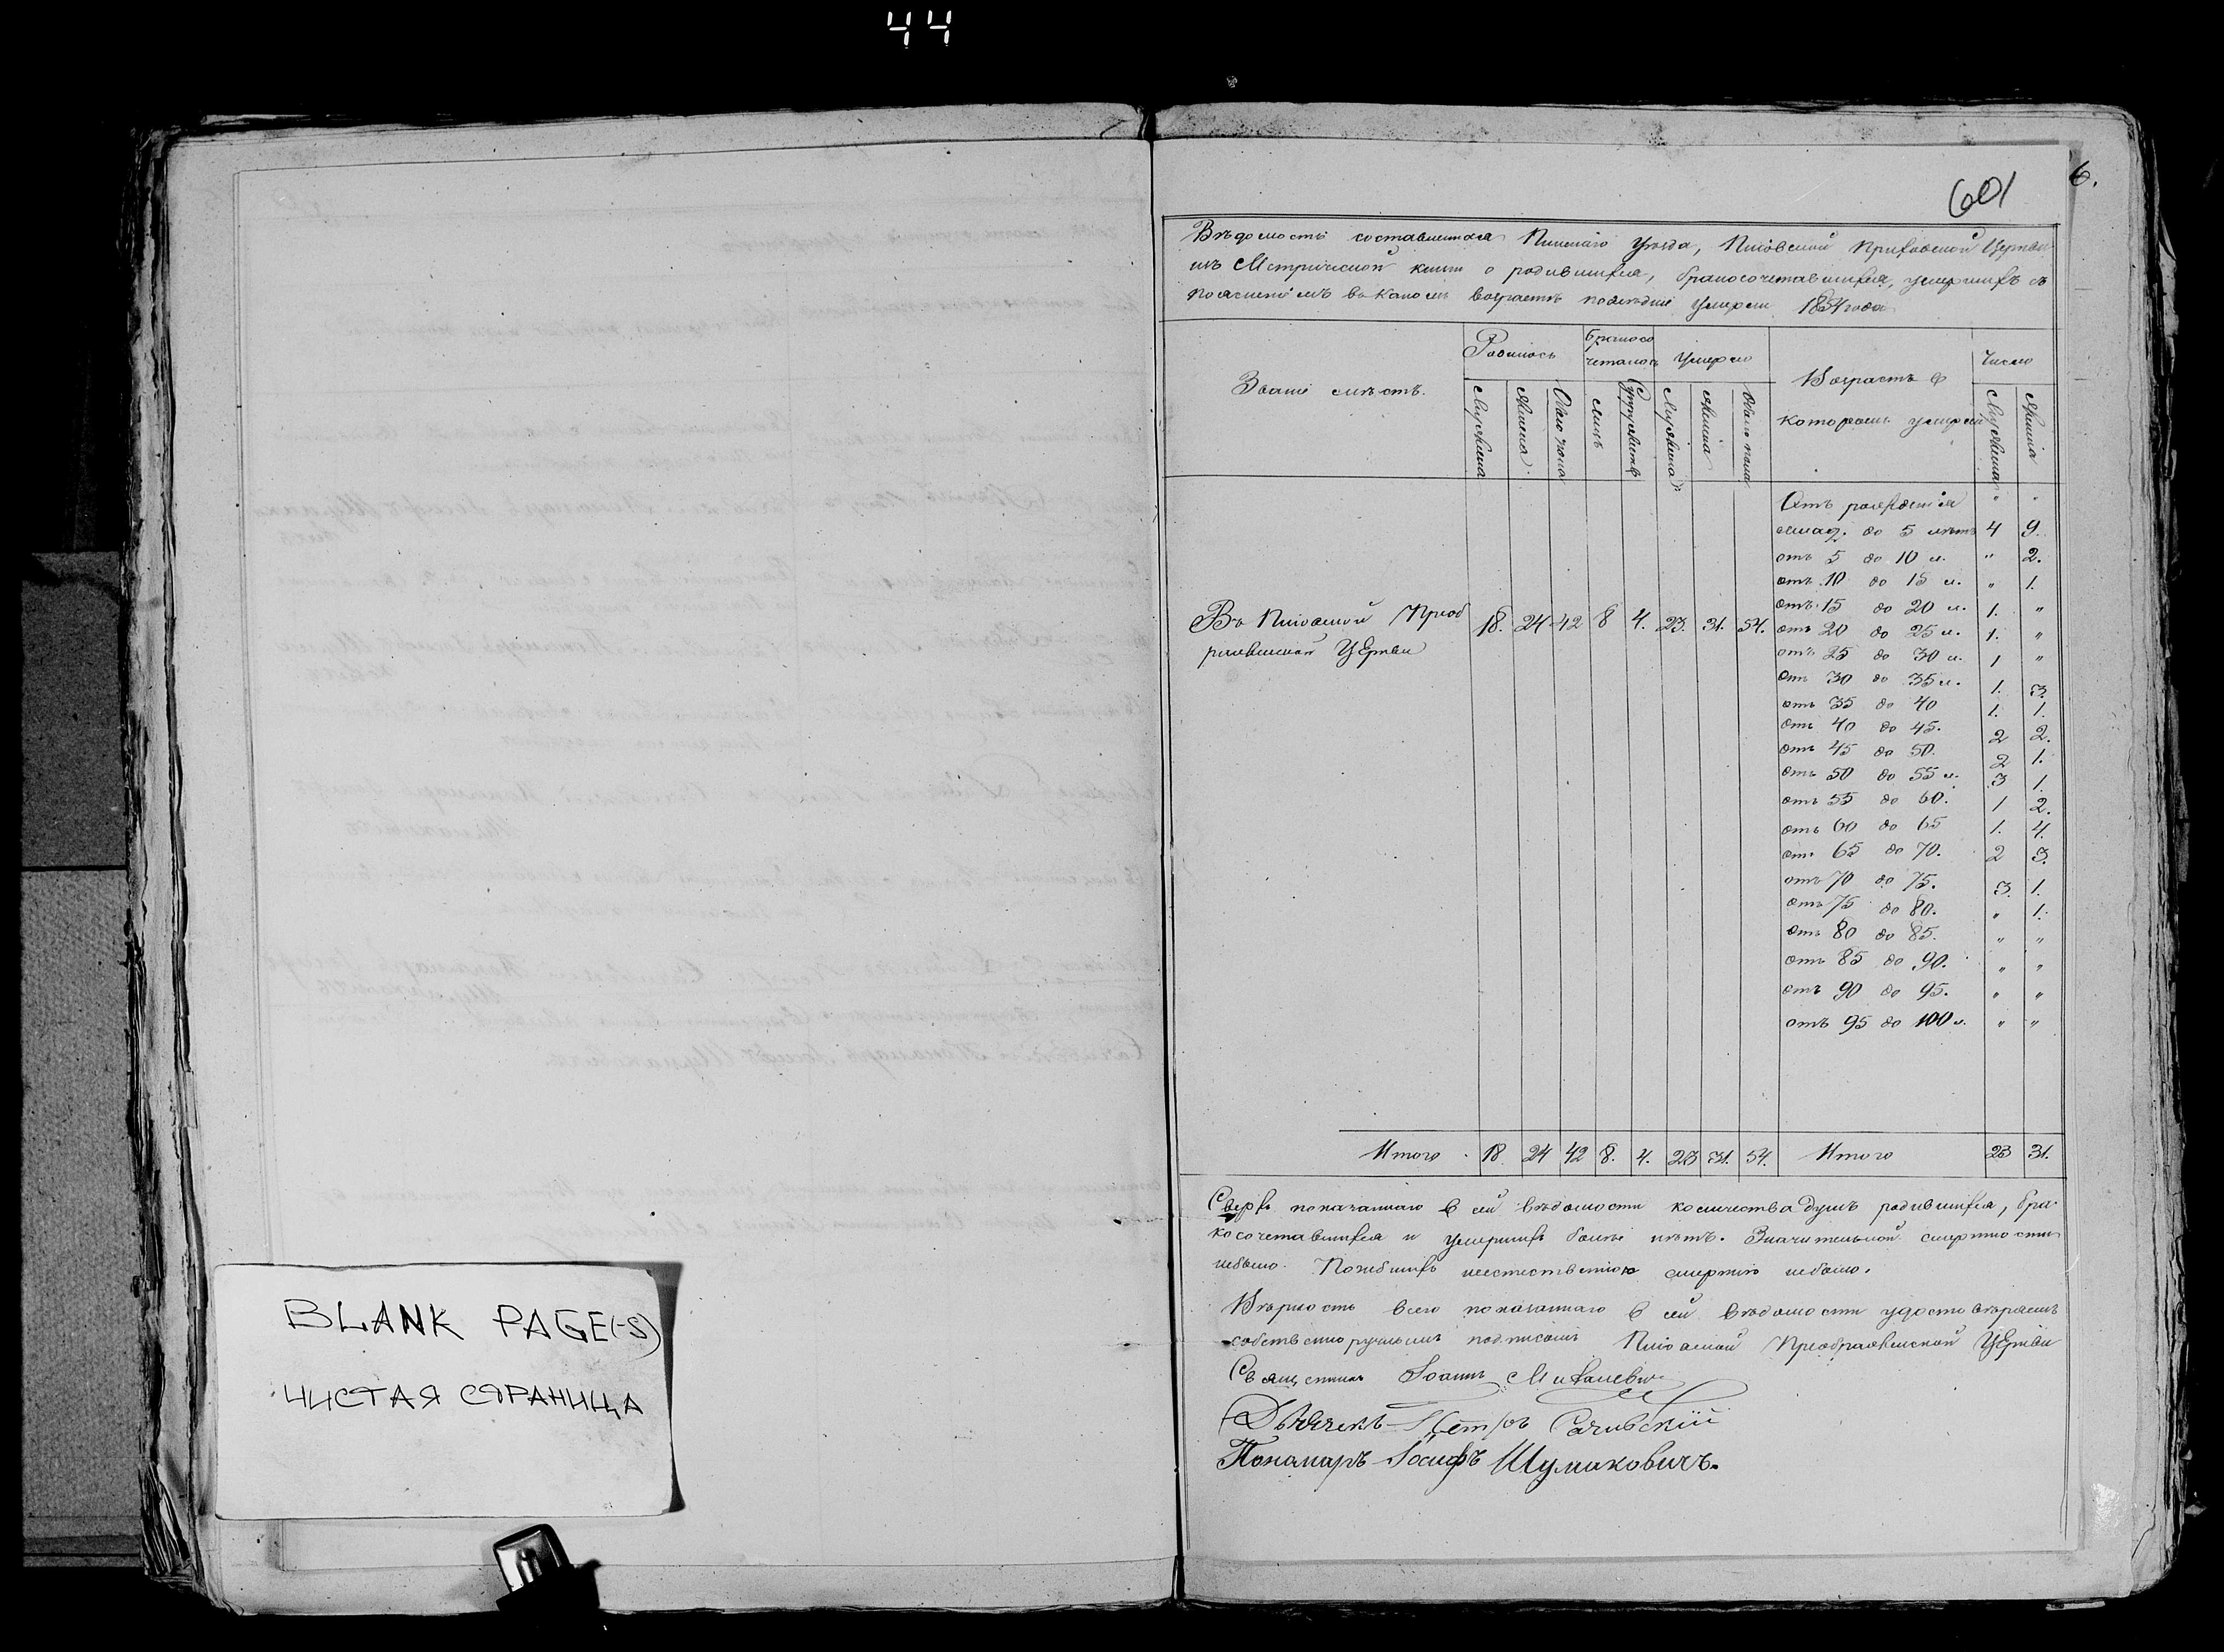 44
601
6.
Вѣдомость составленная Пинскаго уѣзда, Приходской Церкви
изъ Метрической книги о родившихся, бракосочетавшихся, умершихъ съ
пояснені емъ въ какомъ возрастѣ послѣдніе умерли 1834 года
Родилось
Бракосо
четалось
Умерло
Число
Званіе мѣстъ.
Возрастъ въ
которомъ умерли
Мужеска
Женска
Обоего пола
лицъ
Супружествъ
Мужеска
Женска
Обоего пола
Мужеска
Женска
Отъ рожденія " "
младз. до 5 лѣтъ 4 9.
отъ 5 до 10 л. " 2.
отъ 10 до 15 л. " 1.
отъ 15 до 20 л. 1. "
отъ 20 до 25 л. 1. "
отъ 25 до 30 л. 1 "
отъ 30 до 35 л. 1. 3.
отъ 35 до 40 1. 1.
отъ 40 до 45. 2 2.
отъ 45 до 50. 2 1.
отъ 50 до 55 л. 3 1.
отъ 55 до 60. 1 2.
отъ 60 до 65 1. 4.
отъ 65 до 70. 2 3.
отъ 70 до 75. 3 1.
отъ 75 до 80. " 1.
отъ 80 до 85. " "
отъ 85 до 90. " "
отъ 90 до 95. " "
отъ 95 до 100 л. " "
Въ Преоб
раженской Церкви
18. 24 42 8 4. 23. 31. 54.
Итого 18 24 42 8. 4. 23 31. 54. Итого 23 31.
Сверхъ показаннаго в сей вѣдомости количества душъ родившихся, бра-
косочетавшихся и умершихъ болѣе нѣтъ. Значительной смертности
небыло. Погибшихъ неестественною смертію небыло.
Вѣрность всего показаннаго в сей вѣдомости удостовѣряемъ
собственноручнымъ подписомъ Преображенской Церкви
Священникъ Іоаннъ Михалевичъ
Дьячекъ Петръ Сачивскій
Пономаръ Іосифъ Шумаковичъ.
BLANK PAGE(-S)
ЧИСТАЯ СТРАНИЦА